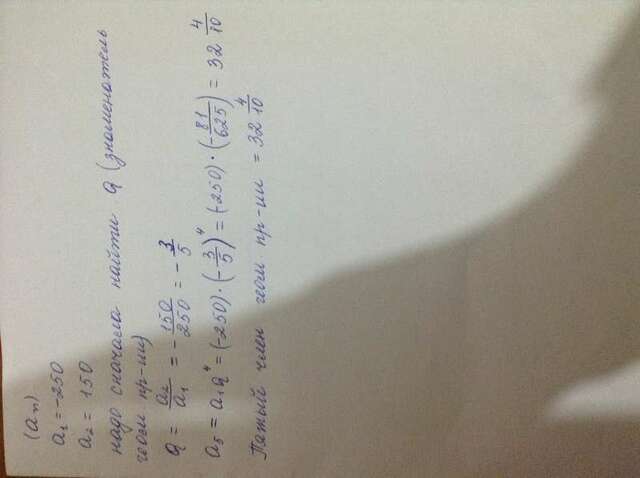 (aₙ)
a₁ = -250
a₂ = 150
надо сначала найти q (знаменатель
геом. пр-ии)
q = a₂/a₁ = - 150/250 = - 3/5
a₅ = a₁q⁴ = (-250) · (- 3/5)⁴ = (-250) · (- 81/625) = 32 4/10
Пятый член геом. пр-ии = 32 4/10